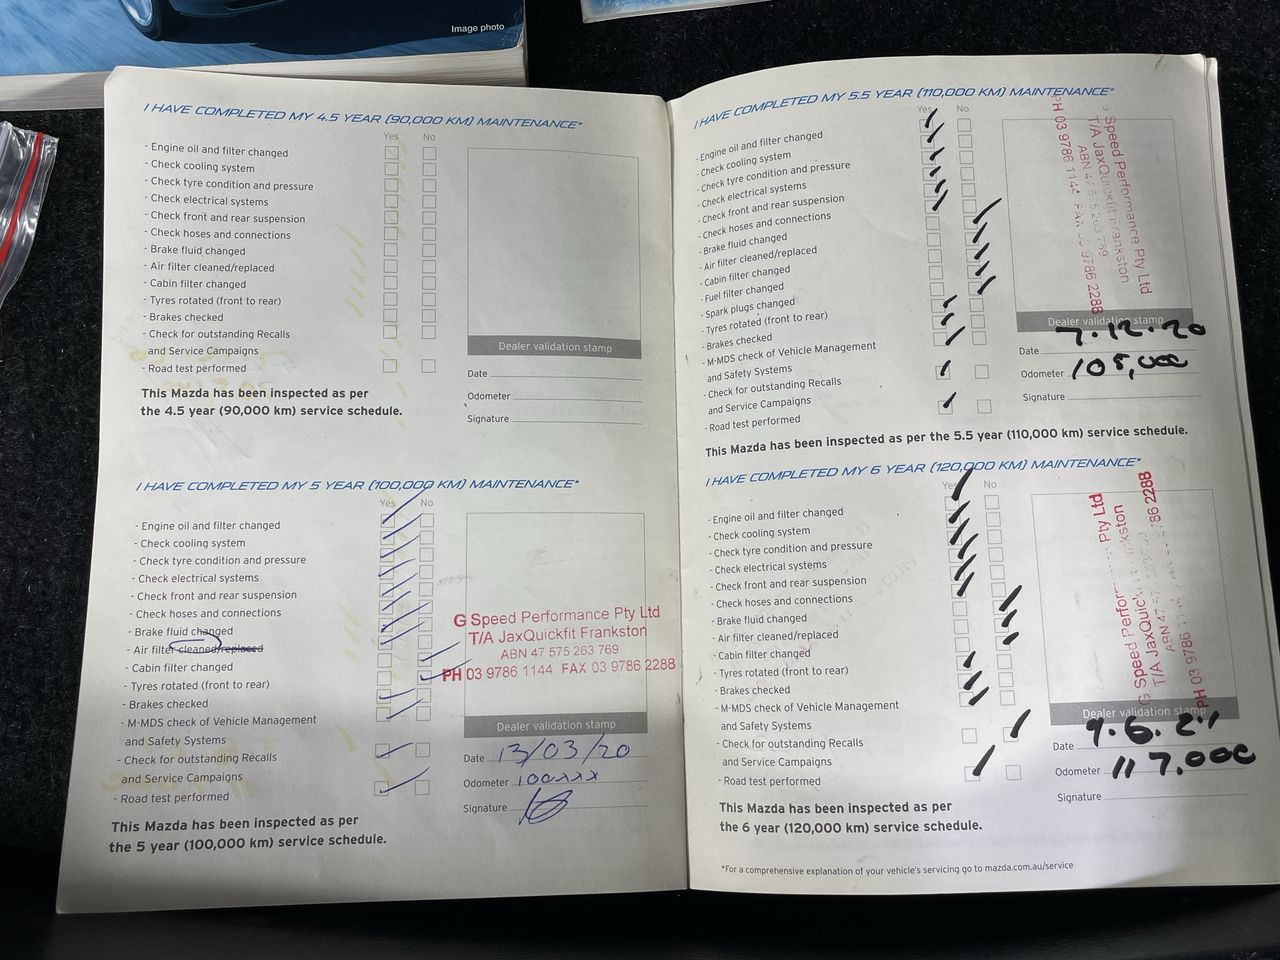 Image photo
I HAVE COMPLETED MY 4.5 YEAR (90,000 KM) MAINTENANCE*
Yes No
- Engine oil and filter changed
- Check cooling system
- Check tyre condition and pressure
- Check electrical systems
- Check front and rear suspension
- Check hoses and connections
- Brake fluid changed
- Air filter cleaned/replaced
- Cabin filter changed
- Tyres rotated (front to rear)
- Brakes checked
- Check for outstanding Recalls
and Service Campaigns
- Road test performed
This Mazda has been inspected as per
the 4.5 year (90,000 km) service schedule.
Dealer validation stamp
Date
Odometer
Signature
I HAVE COMPLETED MY 5 YEAR (100,000 KM) MAINTENANCE*
Yes No
- Engine oil and filter changed
- Check cooling system
- Check tyre condition and pressure
- Check electrical systems
- Check front and rear suspension
- Check hoses and connections
- Brake fluid changed
- Air filter cleaned/replaced
- Cabin filter changed
- Tyres rotated (front to rear)
- Brakes checked
- M-MDS check of Vehicle Management
and Safety Systems
- Check for outstanding Recalls
and Service Campaigns
- Road test performed
This Mazda has been inspected as per
the 5 year (100,000 km) service schedule.
G Speed Performance Pty Ltd
T/A JaxQuickfit Frankston
ABN 47 575 263 769
PH 03 9786 1144 FAX 03 9786 2288
Dealer validation stamp
Date 13/03/20
Odometer 100xxx
Signature
I HAVE COMPLETED MY 5.5 YEAR (110,000 KM) MAINTENANCE*
Yes No
- Engine oil and filter changed
- Check cooling system
- Check tyre condition and pressure
- Check electrical systems
- Check front and rear suspension
- Check hoses and connections
- Brake fluid changed
- Air filter cleaned/replaced
- Cabin filter changed
- Fuel filter changed
- Spark plugs changed
- Tyres rotated (front to rear)
- Brakes checked
- M-MDS check of Vehicle Management
and Safety Systems
- Check for outstanding Recalls
and Service Campaigns
- Road test performed
This Mazda has been inspected as per the 5.5 year (110,000 km) service schedule.
Speed Performance Pty Ltd
T/A JaxQuickfit Frankston
ABN 47
PH 03 9786 1144 FAX 9786 2288
Dealer validation stamp
Date 7.12.20
Odometer 108,000
Signature
I HAVE COMPLETED MY 6 YEAR (120,000 KM) MAINTENANCE*
Yes No
- Engine oil and filter changed
- Check cooling system
- Check tyre condition and pressure
- Check electrical systems
- Check front and rear suspension
- Check hoses and connections
- Brake fluid changed
- Air filter cleaned/replaced
- Cabin filter changed
- Tyres rotated (front to rear)
- Brakes checked
- M-MDS check of Vehicle Management
and Safety Systems
- Check for outstanding Recalls
and Service Campaigns
- Road test performed
This Mazda has been inspected as per
the 6 year (120,000 km) service schedule.
G Speed Pty Ltd
T/A
ABN 47
PH 03 9786 2288
Dealer validation stamp
Date 9.6.21
Odometer 117.000
Signature
*For a comprehensive explanation of your vehicle's servicing go to mazda.com.au/service